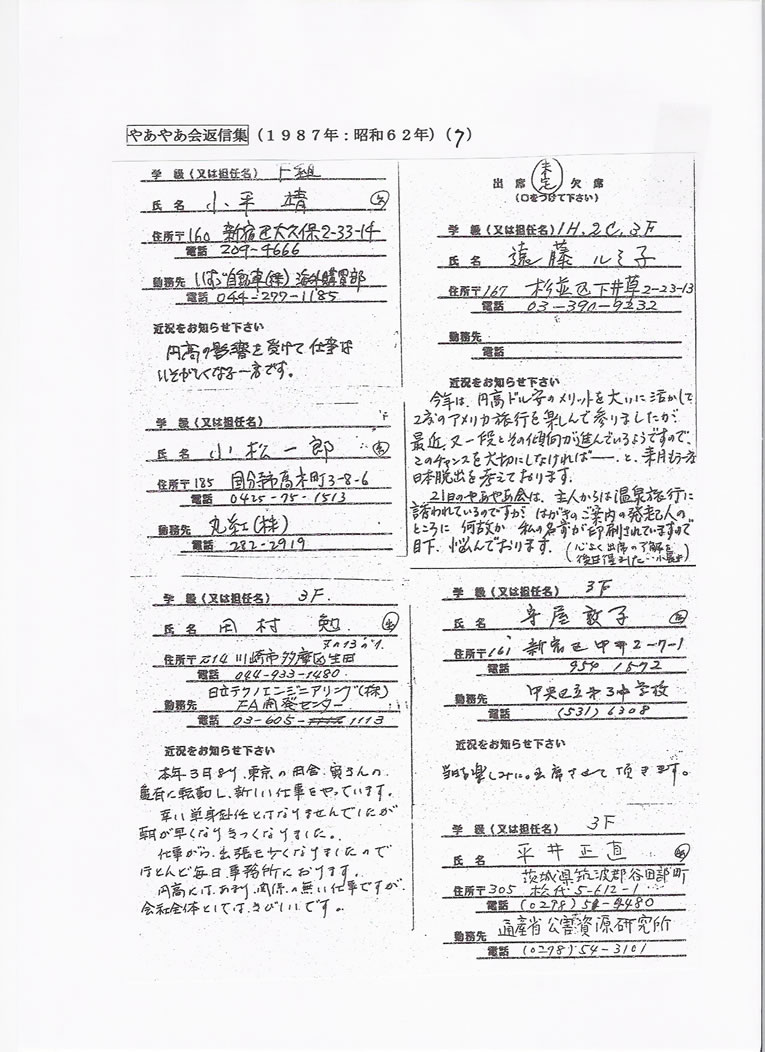 やあやあ会返信集（１９８７年：昭和６２年）（7）
学　級（又は担任名） F組
氏　名 小平 靖
住所〒160 新宿区大久保2-33-14
電話 209-4666
勤務先 いすゞ自動車(株) 海外購買部
電話 044-277-1185
近況をお知らせ下さい
円高の影響を受けて仕事は
いそがしくなる一方です。
学　級（又は担任名） F
氏　名 小松一郎
住所〒185 国分寺市高木町3-8-6
電話 0425-75-1513
勤務先 丸紅(株)
電話 282-2919
学　級（又は担任名） 3F.
氏　名 岡村 勉
住所〒214 川崎市多摩区生田
電話 044-933-1480
日立テクノエンジニアリング(株)
勤務先 FA開発センター
電話 03-605-1113
近況をお知らせ下さい
本年3月より、東京の田舎、寅さんの
亀有に転勤し、新しい仕事をやっています。
幸い単身赴任とはなりませんでしたが
朝が早くなりきつくなりました。
仕事がら、出張も少くなりましたので
ほとんど毎日、事務所におります。
円高には、あまり関係の無い仕事ですが、
会社全体としては、きびしいです。
出席 未定 欠席
（○をつけて下さい）
学　級（又は担任名） 1H.2C.3F
氏　名 遠藤 ルミ子
住所〒167 杉並区下井草2-23-13
電話 03-390-9232
勤務先
電話
近況をお知らせ下さい
今年は、円高ドル安のメリットを大いに活かして
2度のアメリカ旅行を楽しんで参りましたが
最近、又一段とその傾向が進んでいるようですので、
このチャンスを大切にしなければ――.と、来月もう一度
日本脱出を考えております。
21日のやあやあ会は、主人からは温泉旅行に
誘われているのですが、はがきのご案内の発起人の
ところに 何故か 私の名前が印刷されていますので
目下、悩んでおります。（心よく出席の了解を
後日得ました…
学　級（又は担任名） 3F
氏　名 守屋敦子
住所〒161 新宿区中井2-7-1
電話 954 1572
勤務先 中央区立第三中学校
電話 (531) 6308
近況をお知らせ下さい
当日を楽しみに。出席させて頂きます。
学　級（又は担任名） 3F
氏　名 平井正直
茨城県筑波郡谷田部町
住所〒305 松代5-612-1
電話 (0298)54-4480
勤務先 通産省公害資源研究所
電話 (0298)54-3101